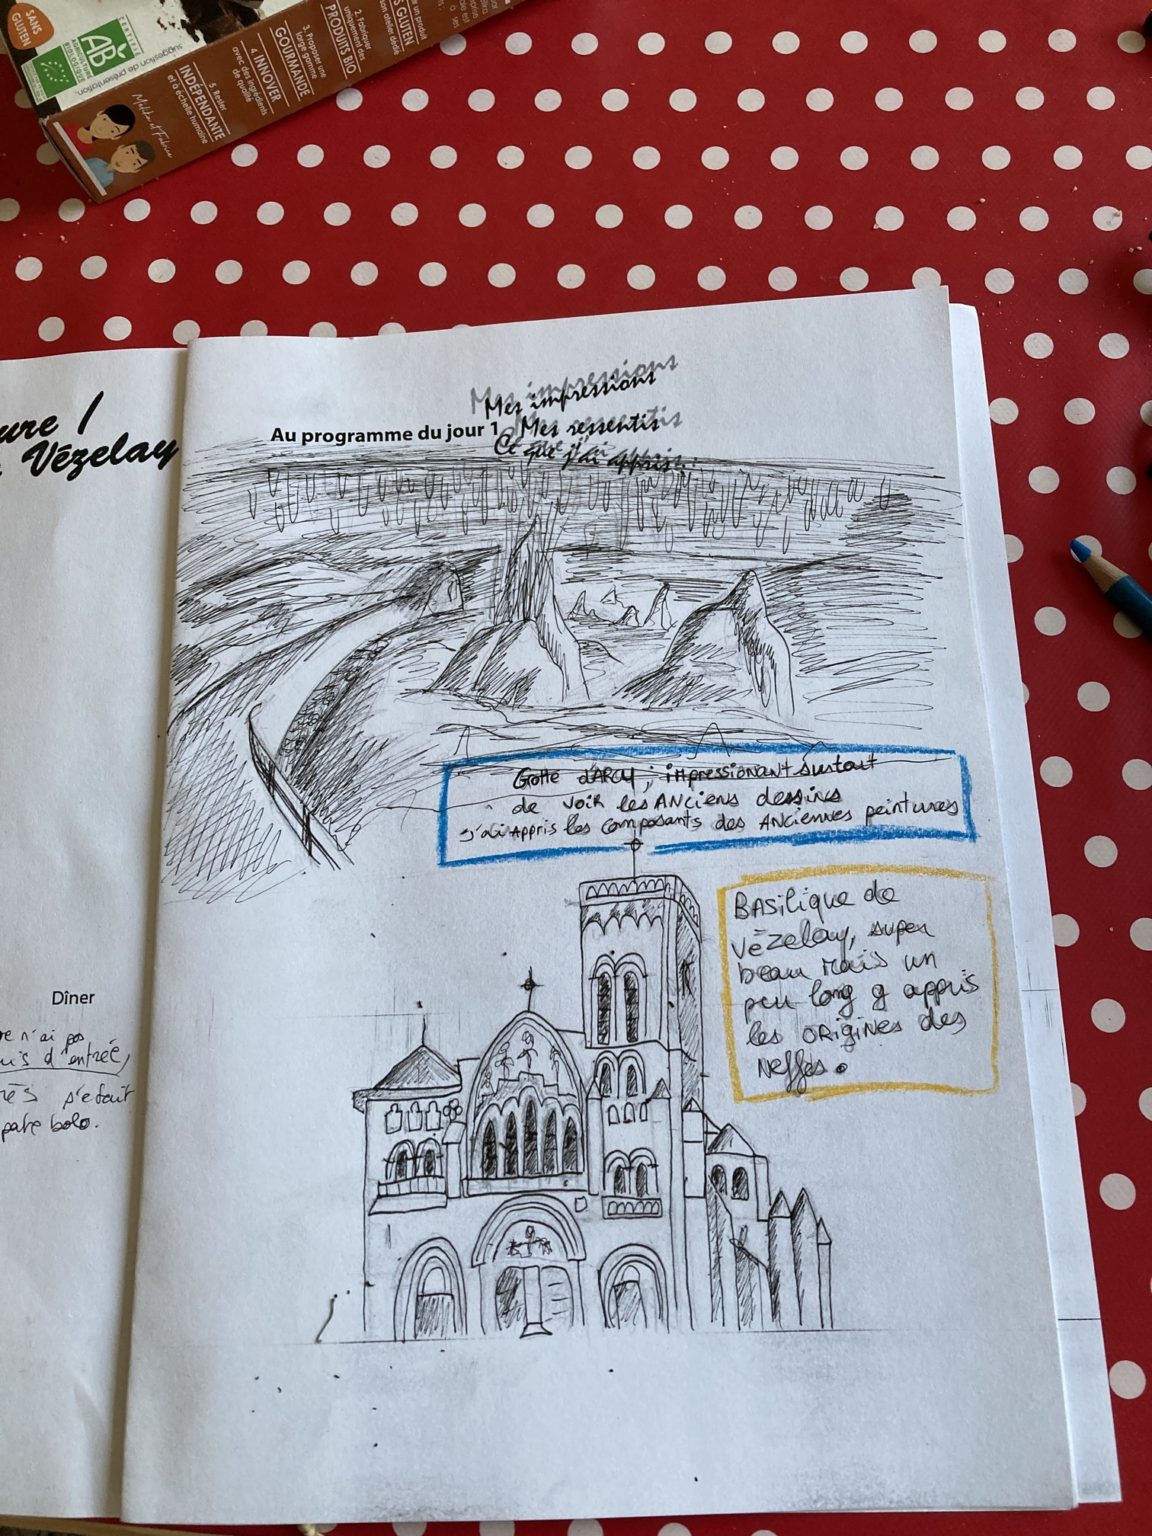 SANS
GLUTEN
CERTIFIÉ
AB
AGRICULTURE
BIOLOGIQUE
suggestion de présentation.
2. Fabriquer
uniquement des
PRODUITS BIO
3. Proposer une
large gamme
GOURMANDE
4. INNOVER
avec des ingrédients
de qualité
5. Rester
INDÉPENDANTE
et à échelle humaine
ure /
Vézelay
Mes impressions
Au programme du jour 1
Mes ressentis
Ce que j'ai appris...
Gotte d'ARCY ; impressionant surtout
de voir les Anciens dessins
J'ai appris les composants des Anciennes peintures
Basilique de
Vézelay, super
beau mais un
peu long g appris
les origines des
Neffes.
Dîner
n'ai pas
d'entrée,
s'etait
pate bolo.